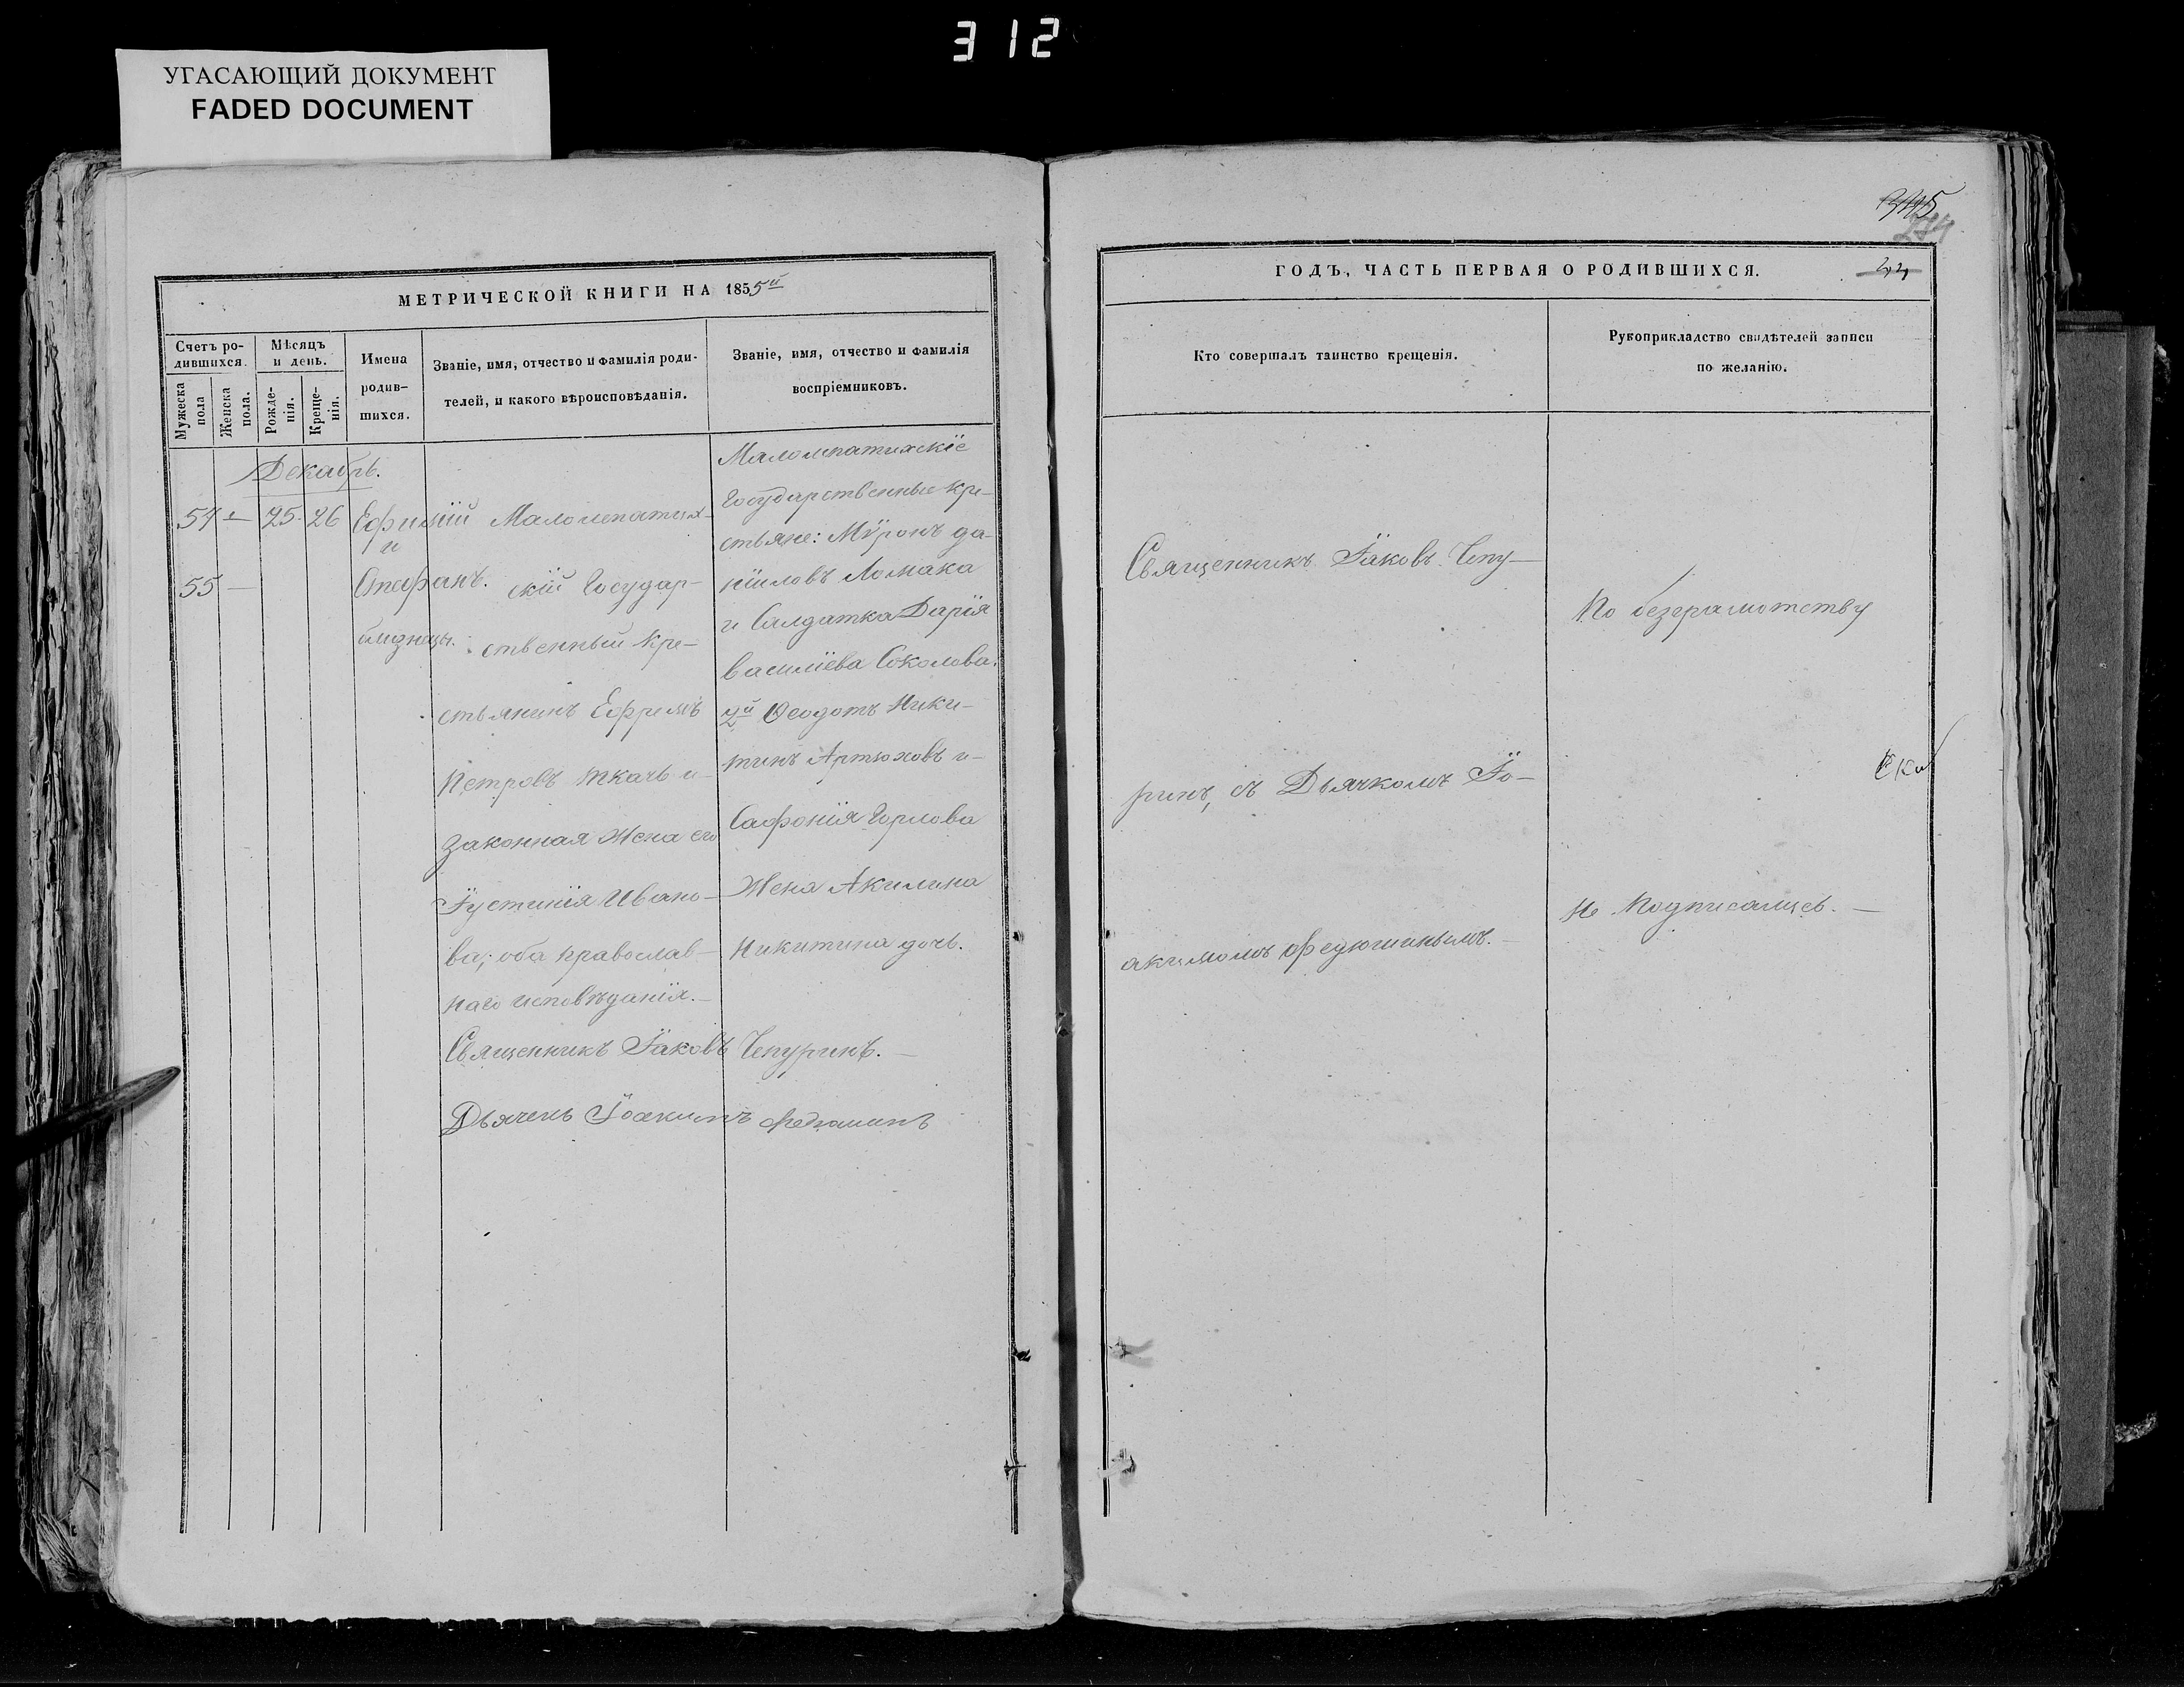 312
УГАСАЮЩИЙ ДОКУМЕНТ
FADED DOCUMENT
МЕТРИЧЕСКОЙ КНИГИ НА 1855й
Счетъ ро-
дившихся.
Мужеска
пола
Женска
пола.
Мѣсяцъ
и день.
Рожде-
нія.
Креще-
нія.
Имена
родив-
шихся.
Званіе, имя, отчество и фамилія роди-
телей, и какого вѣроисповѣданія.
Званіе, имя, отчество и фамилія
воспріемниковъ.
Декабрь.
54 - 25. 26
55 -
Ефимій
и
Стефанъ.
близнецы.
кій Государ-
ственный Кре-
стьянинъ Ефремъ
Петровъ Ткачь и
Законная Жена его
Іустинія Ивано-
ва; оба Православ-
наго исповѣданія.
Государственные Кре-
стьяне: Мѵронъ Да-
ніиловъ Ломака
и Салдатка Дарія
Василіева Соколова.
2й Ѳеодотъ Ники-
тинъ Артюховъ и
Сафонія Горлова
Жена Акилина
Никитина дочь.
Священникъ Іаковъ Чепуринъ.
Дьячекъ Іоакимъ Федюшинъ
ГОДЪ, ЧАСТЬ ПЕРВАЯ О РОДИВШИХСЯ.
Кто совершалъ таинство крещенія.
Рукоприкладство свидѣтелей записи
по желанію.
Священникъ Іаковъ Чепу-
ринъ, съ Дьячкомъ Іо-
акимомъ Федюшинымъ.
По безграмотству
Не Подписались.